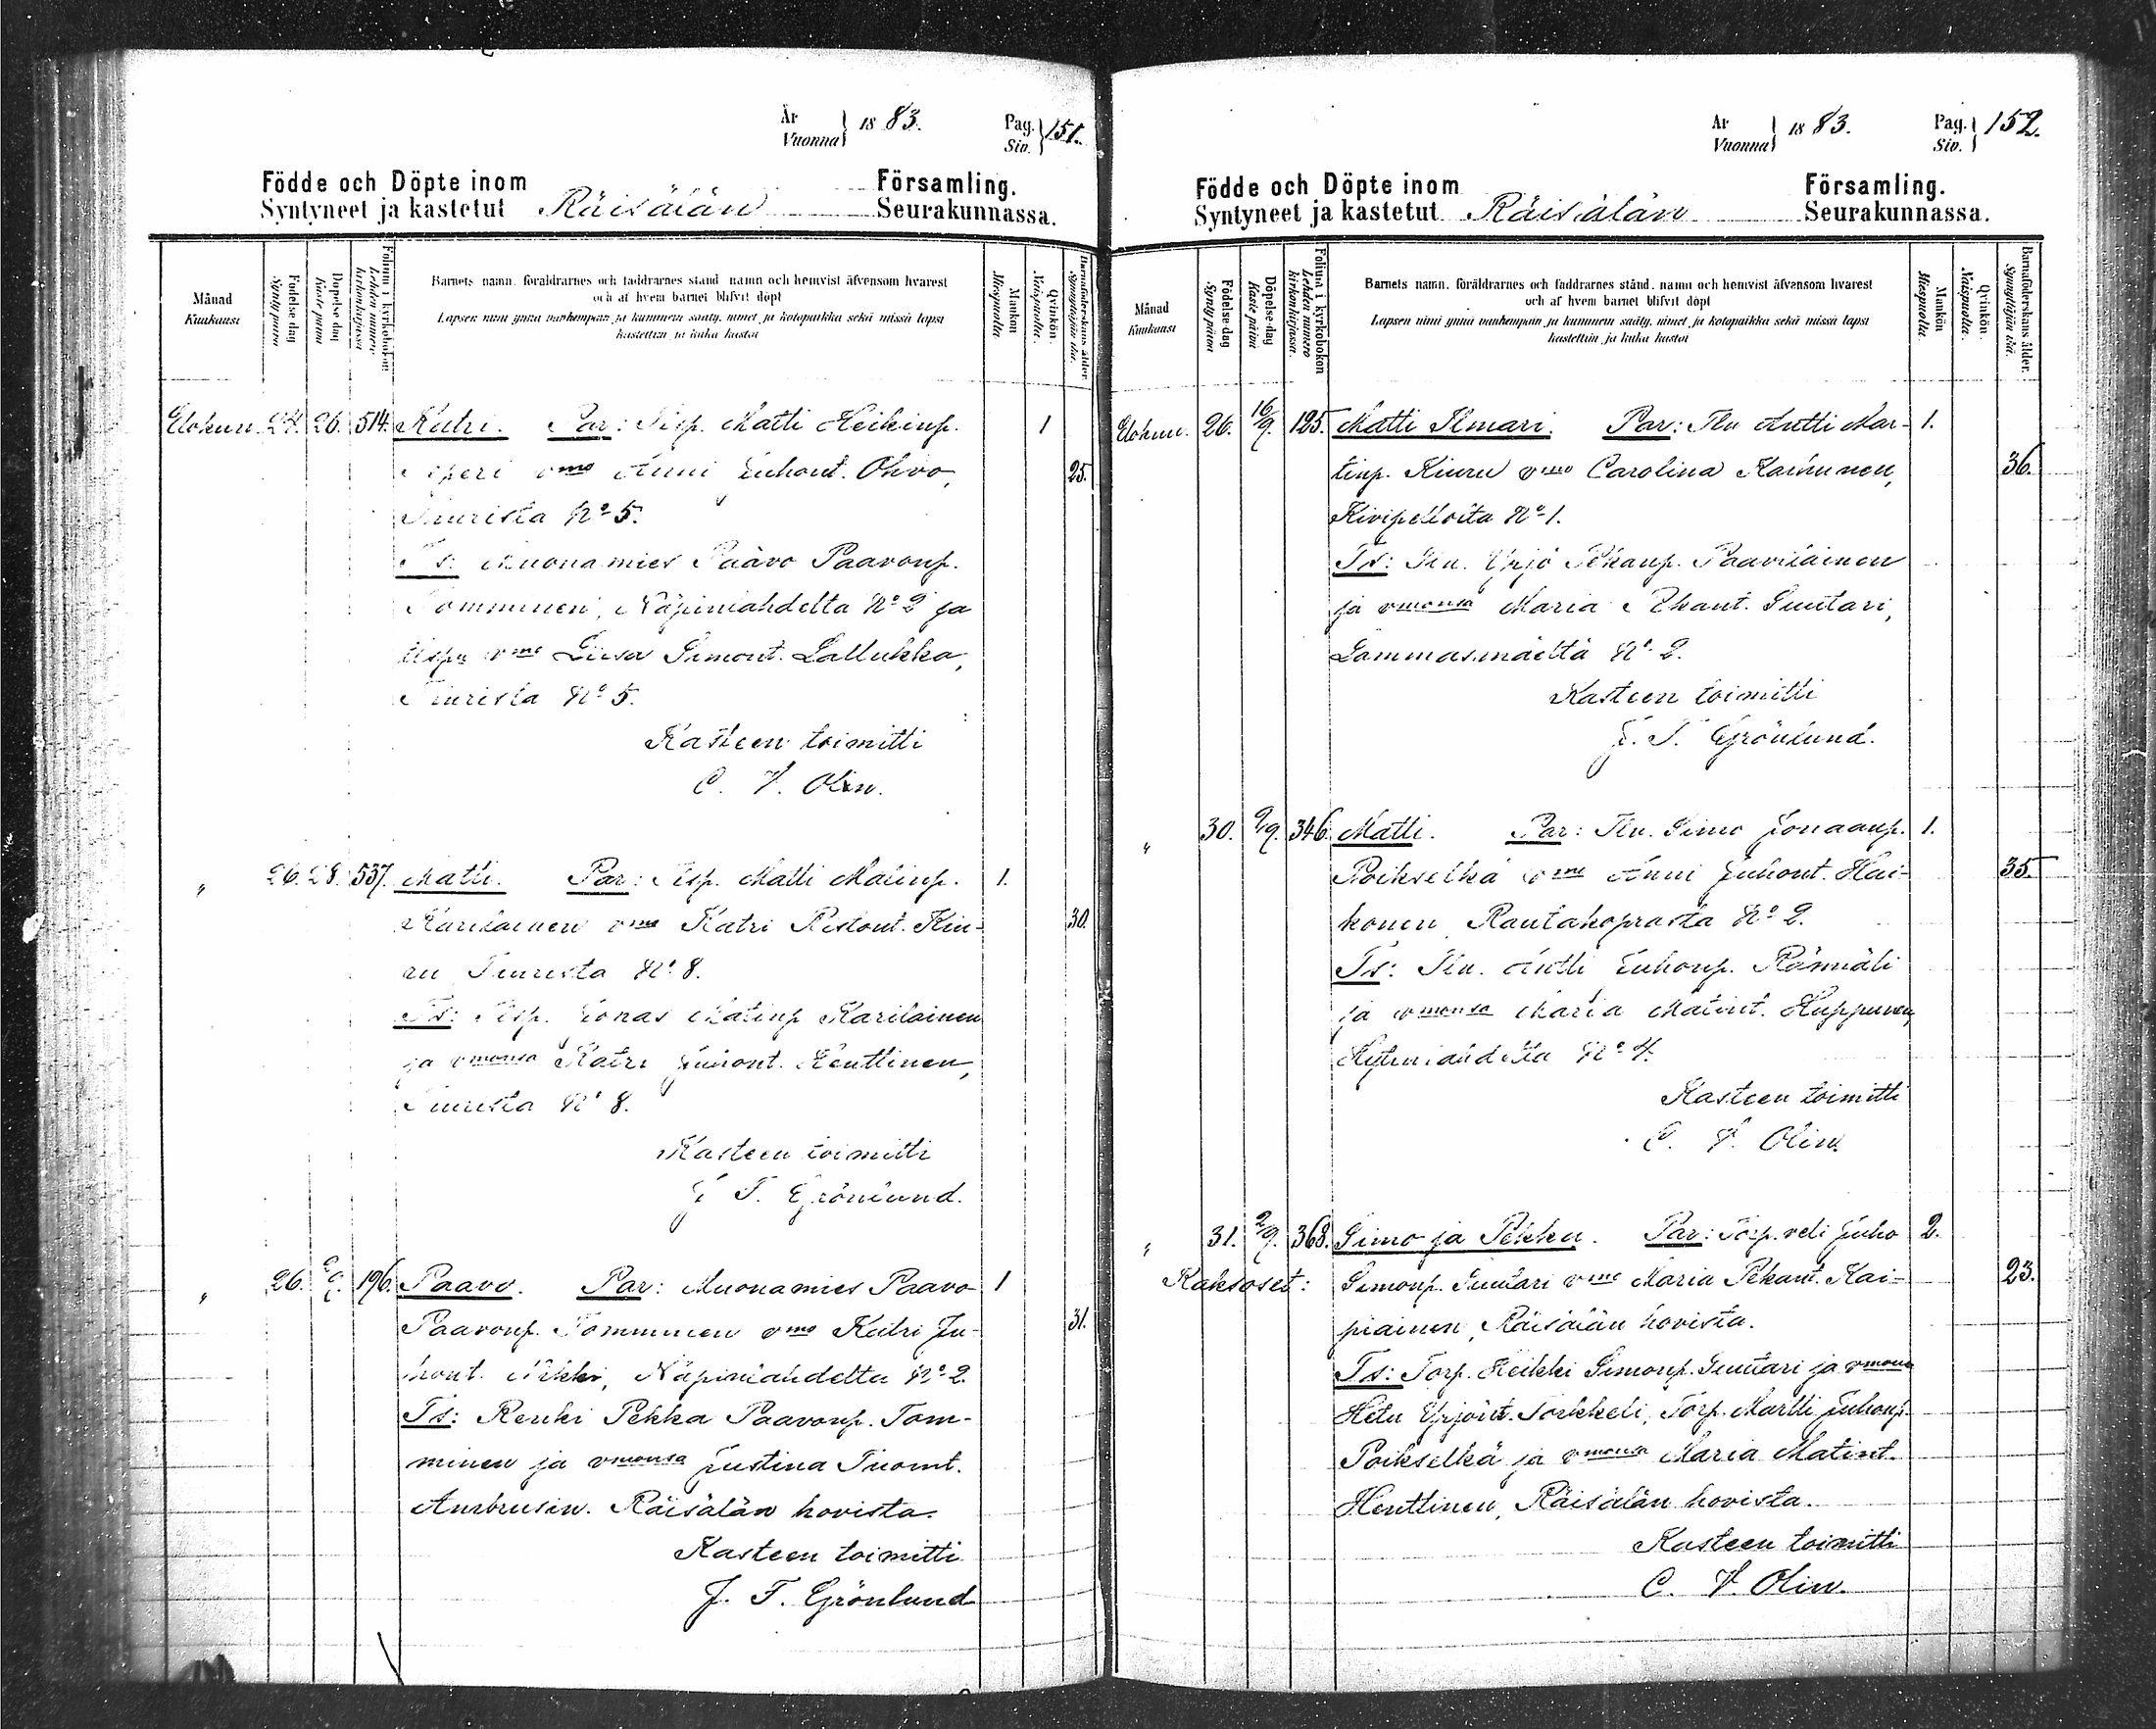 År
Vuonna } 1883.
Pag.
Siv. } 151.
Födde och Döpte inom
Syntyneet ja kastetut Räisälän
Församling.
Seurakunnassa.
Månad
Kuukausi
Födelse dag
Synty päivä
Döpelse dag
Kaste päivä
Folium i kyrkoboken
Lehden numero kirkonkirjassa
Barnets namn, föräldrarnes och faddrarnes stånd, namn och hemvist äfvensom hvarest
och af hvem barnet blifvit döpt
Lapsen nimi ynnä vanhempain ja kummein sääty, nimet ja kotopaikka sekä missä lapsi
kastettiin ja kuka kastoi
Mankön
Miespuolta.
Qvinkön.
Naispuolta.
Barnaföderskans ålder.
Synnyttäjän ikä.
Elokuu. 24. 26. 514. Katri. Par: Itsp. Matti Heikinp. 1
vmo Anni Juhont. Ohvo, 25.
Tiurista No 5.
Ts: Muonamies Paavo Paavonp.
Tomminen, Näpinlahdelta No 2 ja
itsp. vmo Liisa Simont. Lallukka,
Tiurista No 5.
Kasteen toimitti
C. V. Olin.
" 26. 28. 537. Matti. Par: Itsp. Matti Matinp. 1.
Karilainen vmo Katri Ristont. Kiu- 30.
ru Tiurista No 8.
Ts: Itsp. Jonas Matinp Karilainen
ja vmonsa Katri Juhont. Henttinen,
Tiurista No 8.
Kasteen toimitti
J. F. Grönlund.
" 26. 2/9. 196. Paavo. Par: Muonamies Paavo 1
Paavonp. Tomminen vmo Katri Ju- 31.
hont. Näpinlahdelta No 2.
Ts: Renki Pekka Paavonp. Tom-
minen ja vmonsa Justina Tuomt.
Ambrusin. Räisälän hovista.
Kasteen toimitti
J. F. Grönlund
År
Vuonna } 1883.
Pag.
Siv. } 152.
Födde och Döpte inom
Syntyneet ja kastetut Räisälän
Församling.
Seurakunnassa.
Månad
Kuukausi
Födelse dag
Synty päivä
Döpelse-dag
Kaste päivä
Folium i kyrkoboken
Lehden numero kirkonkirjassa.
Barnets namn, föräldrarnes och faddrarnes stånd, namn och hemvist äfvensom hvarest
och af hvem barnet blifvit döpt
Lapsen nimi ynnä vanhempain ja kummein sääty, nimet ja kotopaikka sekä missä lapsi
kastettiin ja kuka kastoi
Mankön
Miespuolta.
Qvinkön.
Naispuolta.
Barnaföderskans ålder.
Synnyttäjän ikä.
Elokuu. 26. 16/9. 125. Matti Ilmari. Par: Tln Antti Mar- 1.
tinp. Kiuru vmo Carolina 36.
Kivipellolta No 1.
Ts: Tln. Yrjö Pekanp. Paavilainen
ja vmonsa Maria Pekant. Suutari,
Lammasmäeltä No 2.
Kasteen toimitti
J. F. Grönlund.
" 30. 2/9. 346. Matti. Par: Tln. Simo Jonaanp. 1.
Poikselkä vmo Anni Juhont. Hai- 35.
konen, Rautakoprasta No 2.
Ts: Tln. Antti Juhonp. Rämiäli
ja vmonsa Maria Matint. Huppunen,
No 4.
Kasteen toimitti
C. V. Olin.
" 31. 2/9. 368. Simo ja Pekka. Par: Torp. veli Juho 2.
Kaksoset: Simonp. Suutari vmo Maria Pekant. Kai- 23.
piainen, Räisälän hovista.
Ts: Torp. Heikki Simonp. Suutari ja vmonsa
Helu Yrjönt. Torkkeli, Torp. Martti Juhonp.
Poikselkä ja vmonsa Maria Matint.
Henttinen, Räisälän hovista.
Kasteen toimitti
C. V. Olin.